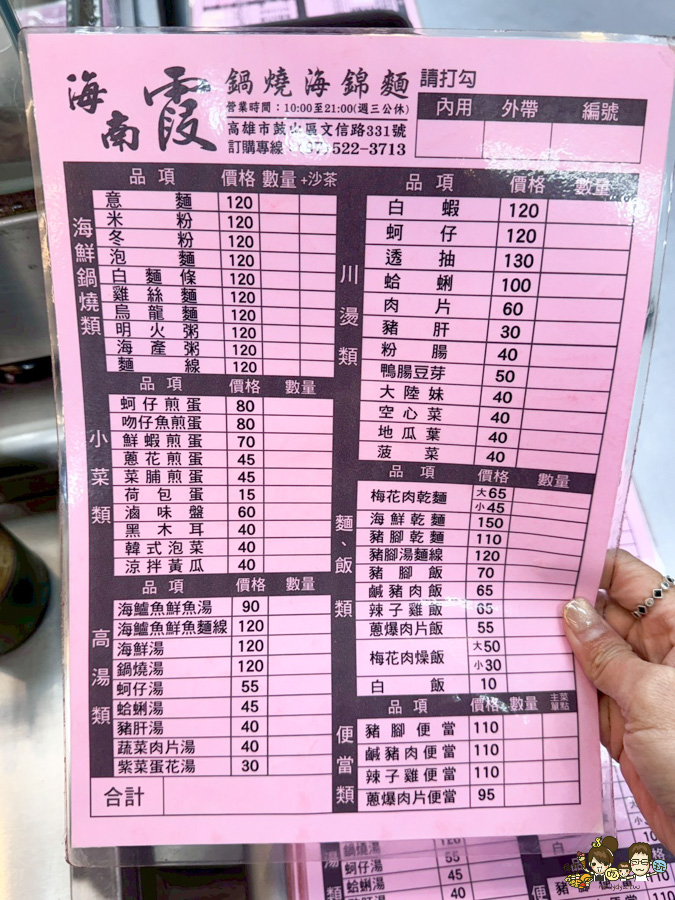 海南霞
鍋燒海錦麵
請打勾
營業時間：10:00至21:00(週三公休)
高雄市鼓山區文信路331號
訂購專線 522-3713
內用 外帶 編號
品項 價格 數量 +沙茶
海鮮鍋燒類
意麵 120
米粉 120
冬粉 120
泡麵 120
白麵條 120
雞絲麵 120
烏龍麵 120
明火粥 120
海產粥 120
麵線 120
品項 價格 數量
小菜類
蚵仔煎蛋 80
吻仔魚煎蛋 80
鮮蝦煎蛋 70
蔥花煎蛋 45
菜脯煎蛋 45
荷包蛋 15
滷味盤 60
黑木耳 40
韓式泡菜 40
涼拌黃瓜 40
品項 價格 數量
高湯類
海鱸魚鮮魚湯 90
海鱸魚鮮魚麵線 120
海鮮湯 120
鍋燒湯 120
蚵仔湯 55
蛤蜊湯 45
豬肝湯 40
蔬菜肉片湯 40
紫菜蛋花湯 30
合計
品項 價格 數量
川燙類
白蝦 120
蚵仔 120
透抽 130
蛤蜊 100
肉片 60
豬肝 30
粉腸 40
鴨腸豆芽 50
大陸妹 40
空心菜 40
地瓜葉 40
菠菜 40
品項 價格 數量
麵、飯類
梅花肉乾麵 大65
小45
海鮮乾麵 150
豬腳乾麵 110
豬腳湯麵線 120
豬腳飯 70
鹹豬肉飯 65
辣子雞飯 65
蔥爆肉片飯 55
梅花肉燥飯 大50
小30
白飯 10
品項 價格 數量 主菜單點
便當類
豬腳便當 110
鹹豬肉便當 110
辣子雞便當 110
蔥爆肉片便當 95
湯
鍋燒湯 120
蚵仔湯 55
蛤蜊湯 45
40